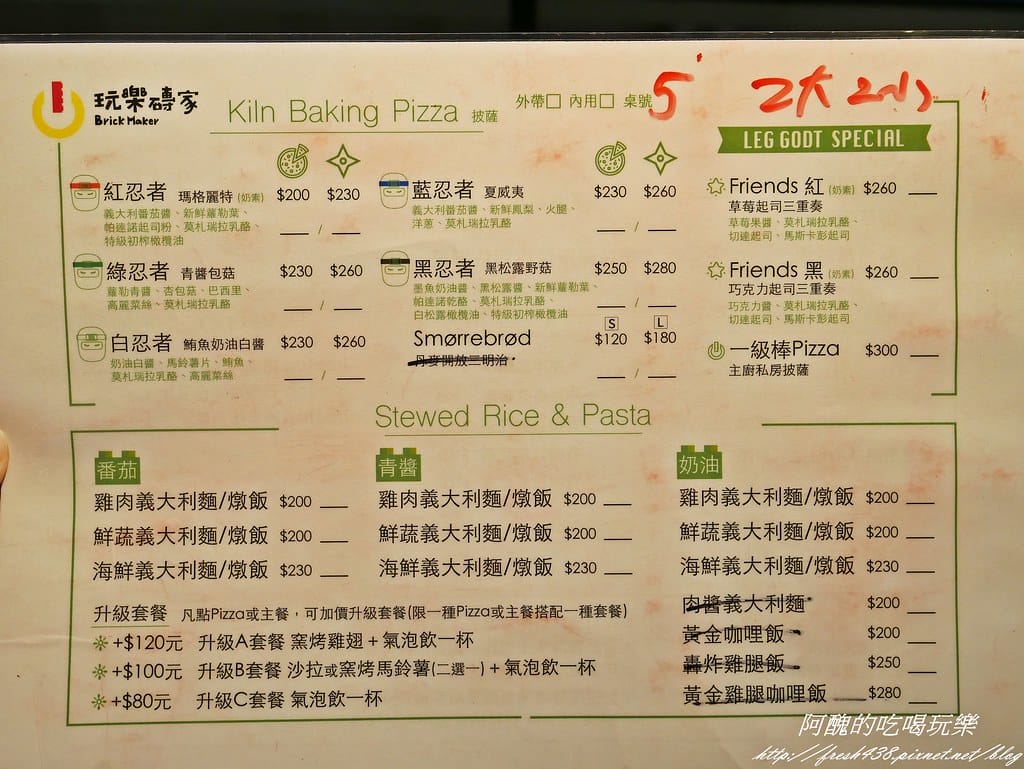 玩樂磚家
Brick Maker
Kiln Baking Pizza 披薩
外帶□ 內用□ 桌號 5
2大2小
LEG GODT SPECIAL
紅忍者 瑪格麗特(奶素) $200 $230
義大利番茄醬、新鮮蘿勒葉、
帕達諾起司粉、莫札瑞拉乳酪、
特級初榨橄欖油
__ / __
綠忍者 青醬包菇 $230 $260
蘿勒青醬、杏包菇、巴西里、
高麗菜絲、莫札瑞拉乳酪
__ / __
白忍者 鮪魚奶油白醬 $230 $260
奶油白醬、馬鈴薯片、鮪魚、
莫札瑞拉乳酪、高麗菜絲
__ / __
藍忍者 夏威夷 $230 $260
義大利番茄醬、新鮮鳳梨、火腿、
洋蔥、莫札瑞拉乳酪
__ / __
黑忍者 黑松露野菇 $250 $280
墨魚奶油醬、黑松露醬、新鮮蘿勒葉、
帕達諾乾酪、莫札瑞拉乳酪、
白松露橄欖油、特級初榨橄欖油
__ / __
S L
Smørrebrød $120 $180
丹麥開放三明治
__ / __
Friends 紅(奶素) $260 __
草莓起司三重奏
草莓果醬、莫札瑞拉乳酪、
切達起司、馬斯卡彭起司
Friends 黑(奶素) $260 __
巧克力起司三重奏
巧克力醬、莫札瑞拉乳酪、
切達起司、馬斯卡彭起司
一級棒Pizza $300 __
主廚私房披薩
Stewed Rice & Pasta
番茄
雞肉義大利麵/燉飯 $200 __
鮮蔬義大利麵/燉飯 $200 __
海鮮義大利麵/燉飯 $230 __
青醬
雞肉義大利麵/燉飯 $200 __
鮮蔬義大利麵/燉飯 $200 __
海鮮義大利麵/燉飯 $230 __
奶油
雞肉義大利麵/燉飯 $200 __
鮮蔬義大利麵/燉飯 $200 __
海鮮義大利麵/燉飯 $230 __
肉醬義大利麵 $200 __
黃金咖哩飯 $200 __
轟炸雞腿飯 $250 __
黃金雞腿咖哩飯 $280 __
升級套餐 凡點Pizza或主餐，可加價升級套餐(限一種Pizza或主餐搭配一種套餐)
+$120元 升級A套餐 窯烤雞翅 + 氣泡飲一杯
+$100元 升級B套餐 沙拉或窯烤馬鈴薯(二選一) + 氣泡飲一杯
+$80元 升級C套餐 氣泡飲一杯
阿醜的吃喝玩樂
http://fresh438.pixnet.net/blog